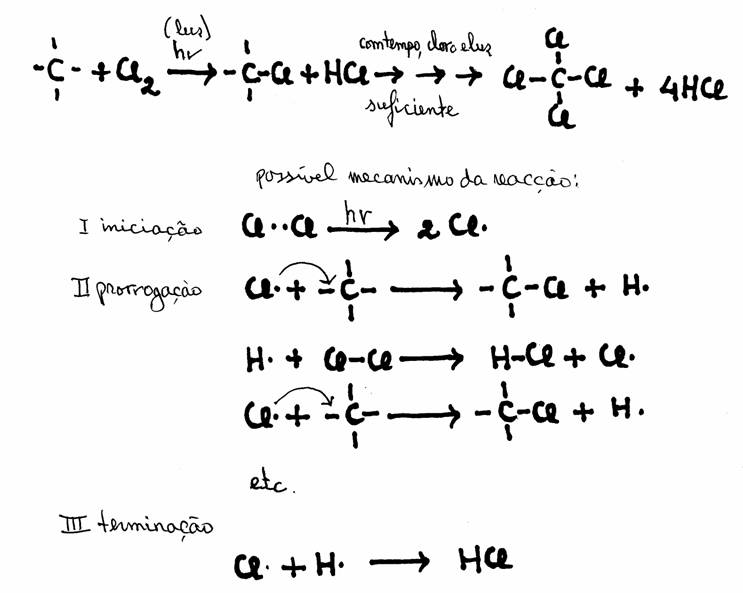 (luz)
-C- + Cl₂ hν → -C-Cl + HCl → → → com tempo, cloro e luz suficiente Cl-C-Cl + 4HCl
Cl
Cl
possível mecanismo da reacção:
I iniciação Cl··Cl hν → 2 Cl·
II prorrogação Cl· + -C- → -C-Cl + H·
H· + Cl-Cl → H-Cl + Cl·
Cl· + -C- → -C-Cl + H·
etc.
III terminação
Cl· + H· → HCl